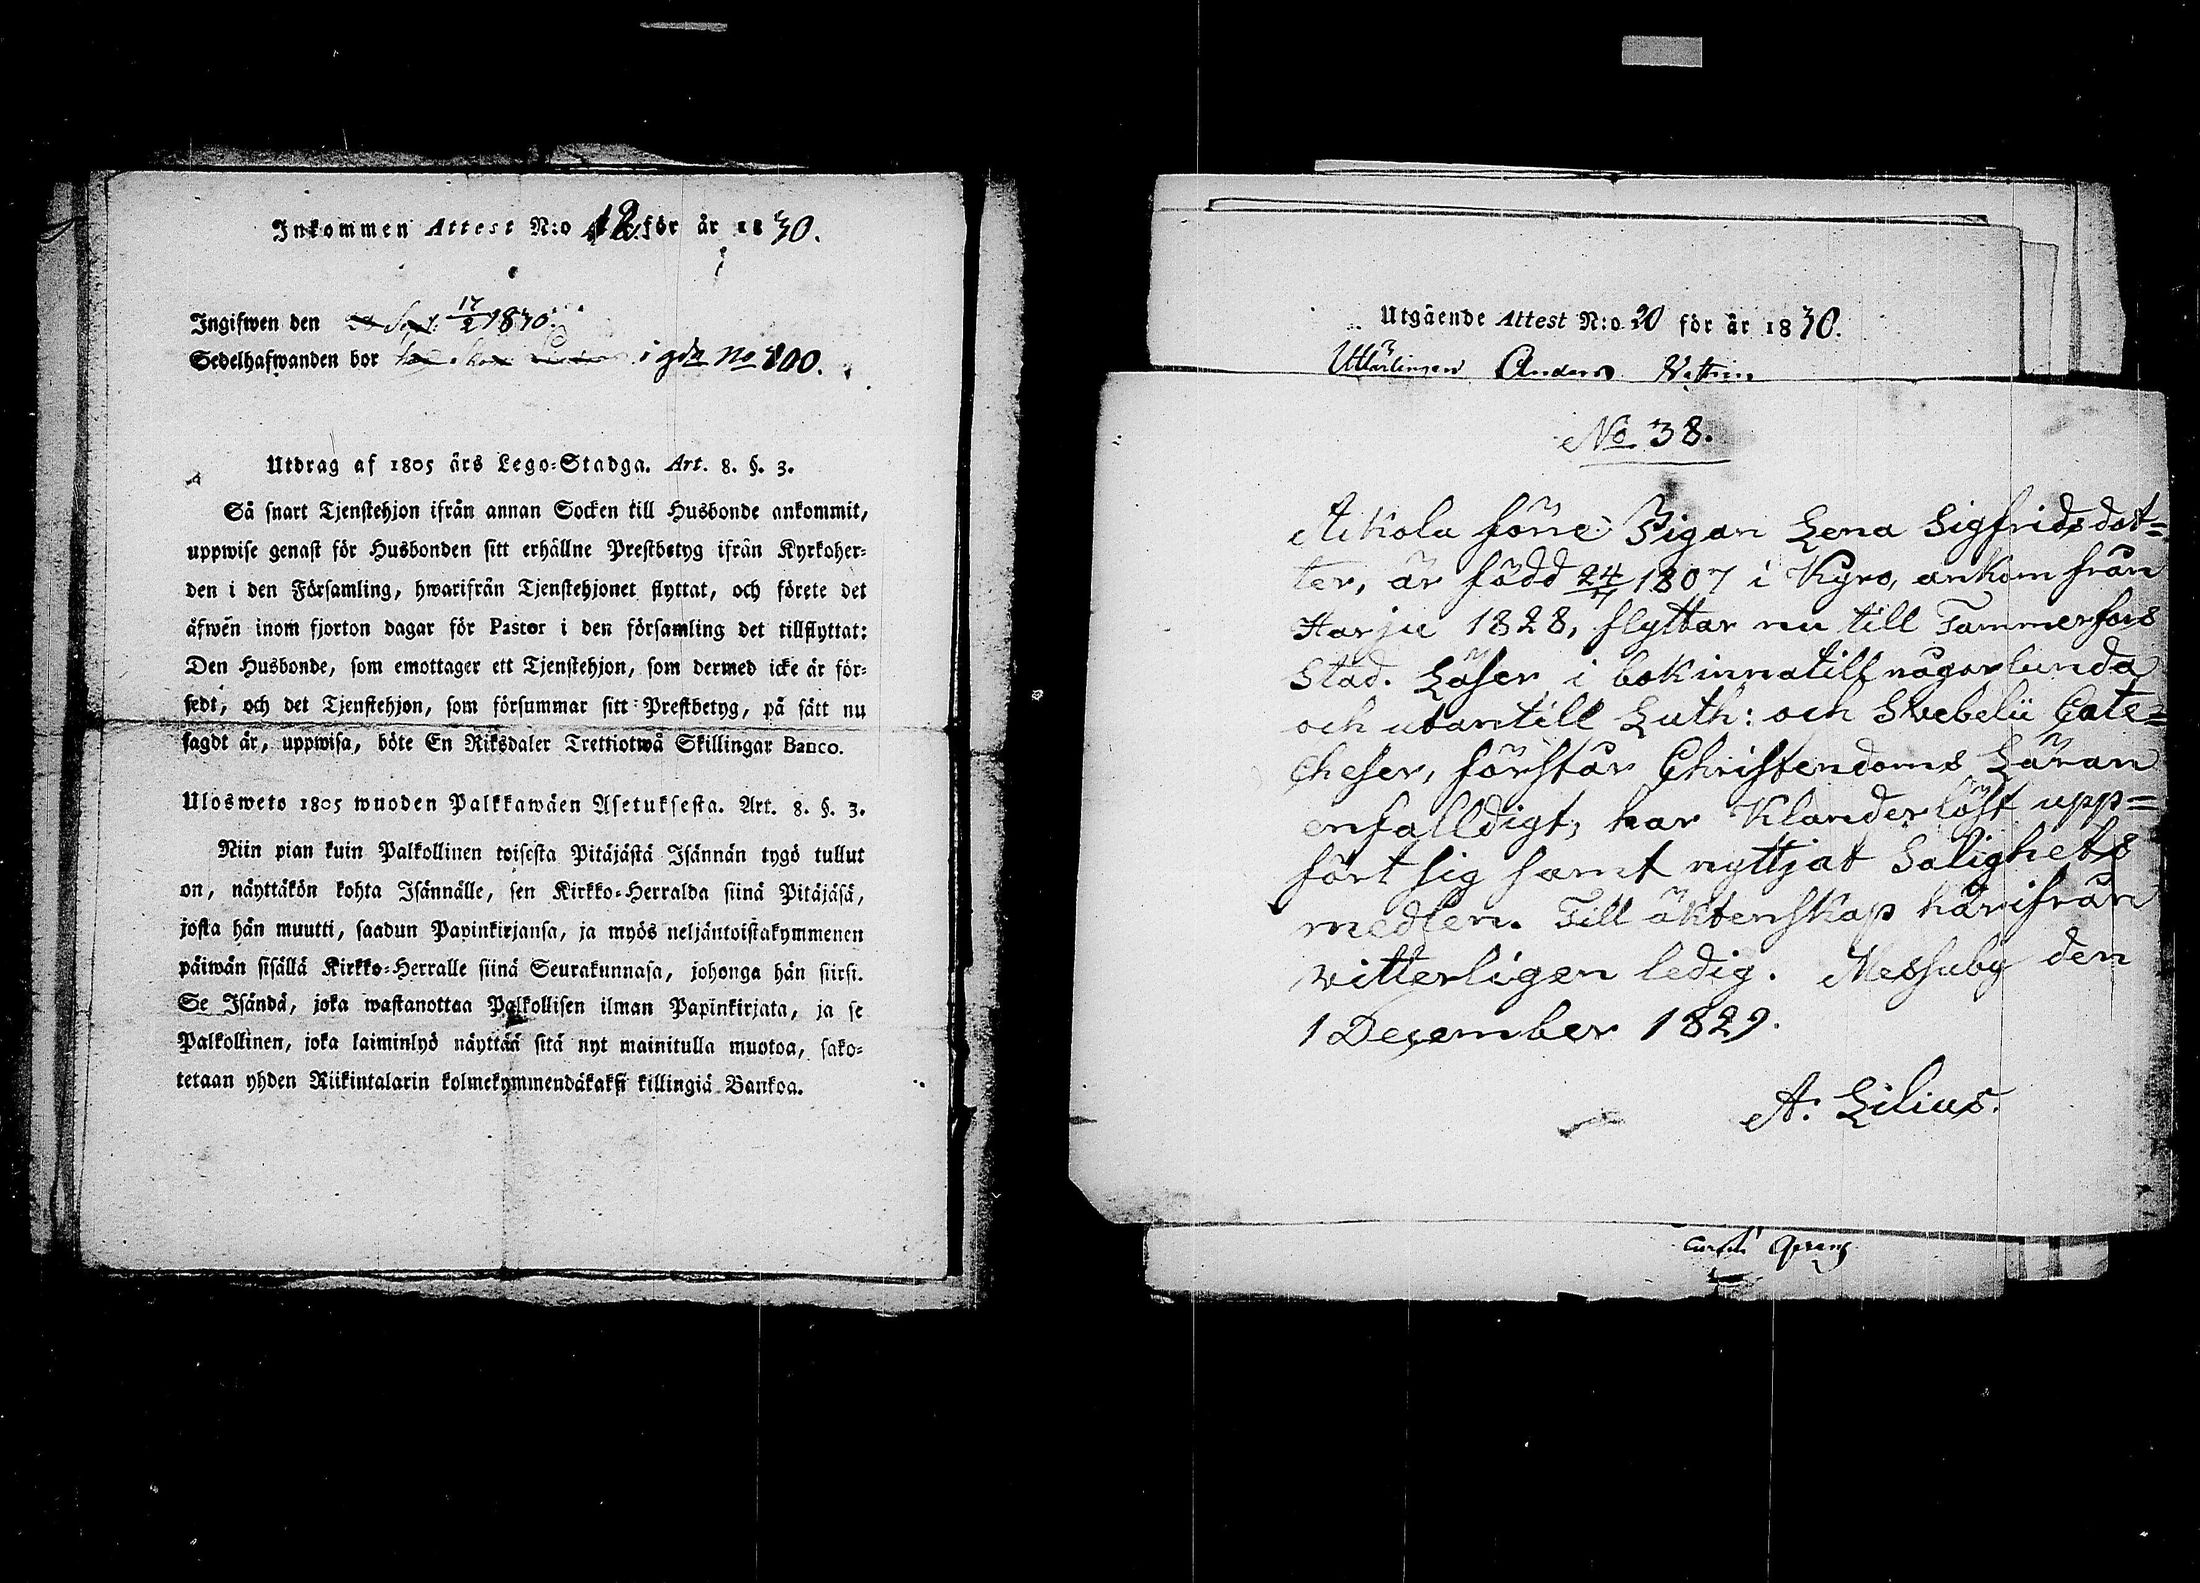 Inkommen Attest N:o 12 för år 1830.
Ingifwen den 17/2 1830.
Sedelhafwanden bor i gdn No 100.
Utdrag af 1805 års Lego-Stadga. Art. 8. §. 3.
Så snart Tjenstehjon ifrån annan Socken till Husbonde ankommit,
uppwise genast för Husbonden sitt erhållne Prestbetyg ifrån Kyrkoher-
den i den Församling, hwarifrån Tjenstehjonet flyttat, och förete det
åfwen inom fjorton dagar för Pastor i den församling det tillflyttat:
Den Husbonde, som emottager ett Tjenstehjon, som dermed icke är för-
sedt, och det Tjenstehjon, som försummar sitt Prestbetyg, på sätt nu
sagdt är, uppwisa, böte En Riksdaler Trettiotwå Skillingar Banco.
Ulosweto 1805 wuoden Palkkawäen Asetuksesta. Art. 8. §. 3.
Niin pian kuin Palkollinen toisesta Pitäjästä Isännän tygö tullut
on, näyttäkön kohta Isännälle, sen Kirkko-Herralda siinä Pitäjäsä,
josta hän muutti, saadun Papinkirjansa, ja myös neljäntoistakymmenen
päiwän sisällä Kirkko-Herralle siinä Seurakunnasa, johonga hän siirsi.
Se Isändä, joka wastanottaa Palkollisen ilman Papinkirjata, ja se
Palkollinen, joka laiminlyö näyttää sitä nyt mainitulla muotoa, sako-
tetaan yhden Riikintalarin kolmekymmendäkaksi killingiä Bankoa.
Utgående Attest N:o 20 för år 1830.
Anders
No 38.
Aikola förre Pigan Lena Sigfridsdot=
ter, är född 24/7 1807 i Kyro, ankom från
Harju 1828, flyttar nu till Tammerfors
Stad. Läser i bok innatill någorlunda
och utantill Luth: och Svebelii Cate=
cheser, förstår Christendoms Läran
enfalldigt, har Klanderlöst upp=
fört sig samt nyttjat Salighets
medlen. Till äktenskap härifrån
vitterligen ledig. Messuby den
1 December 1829.
A. Lilius.